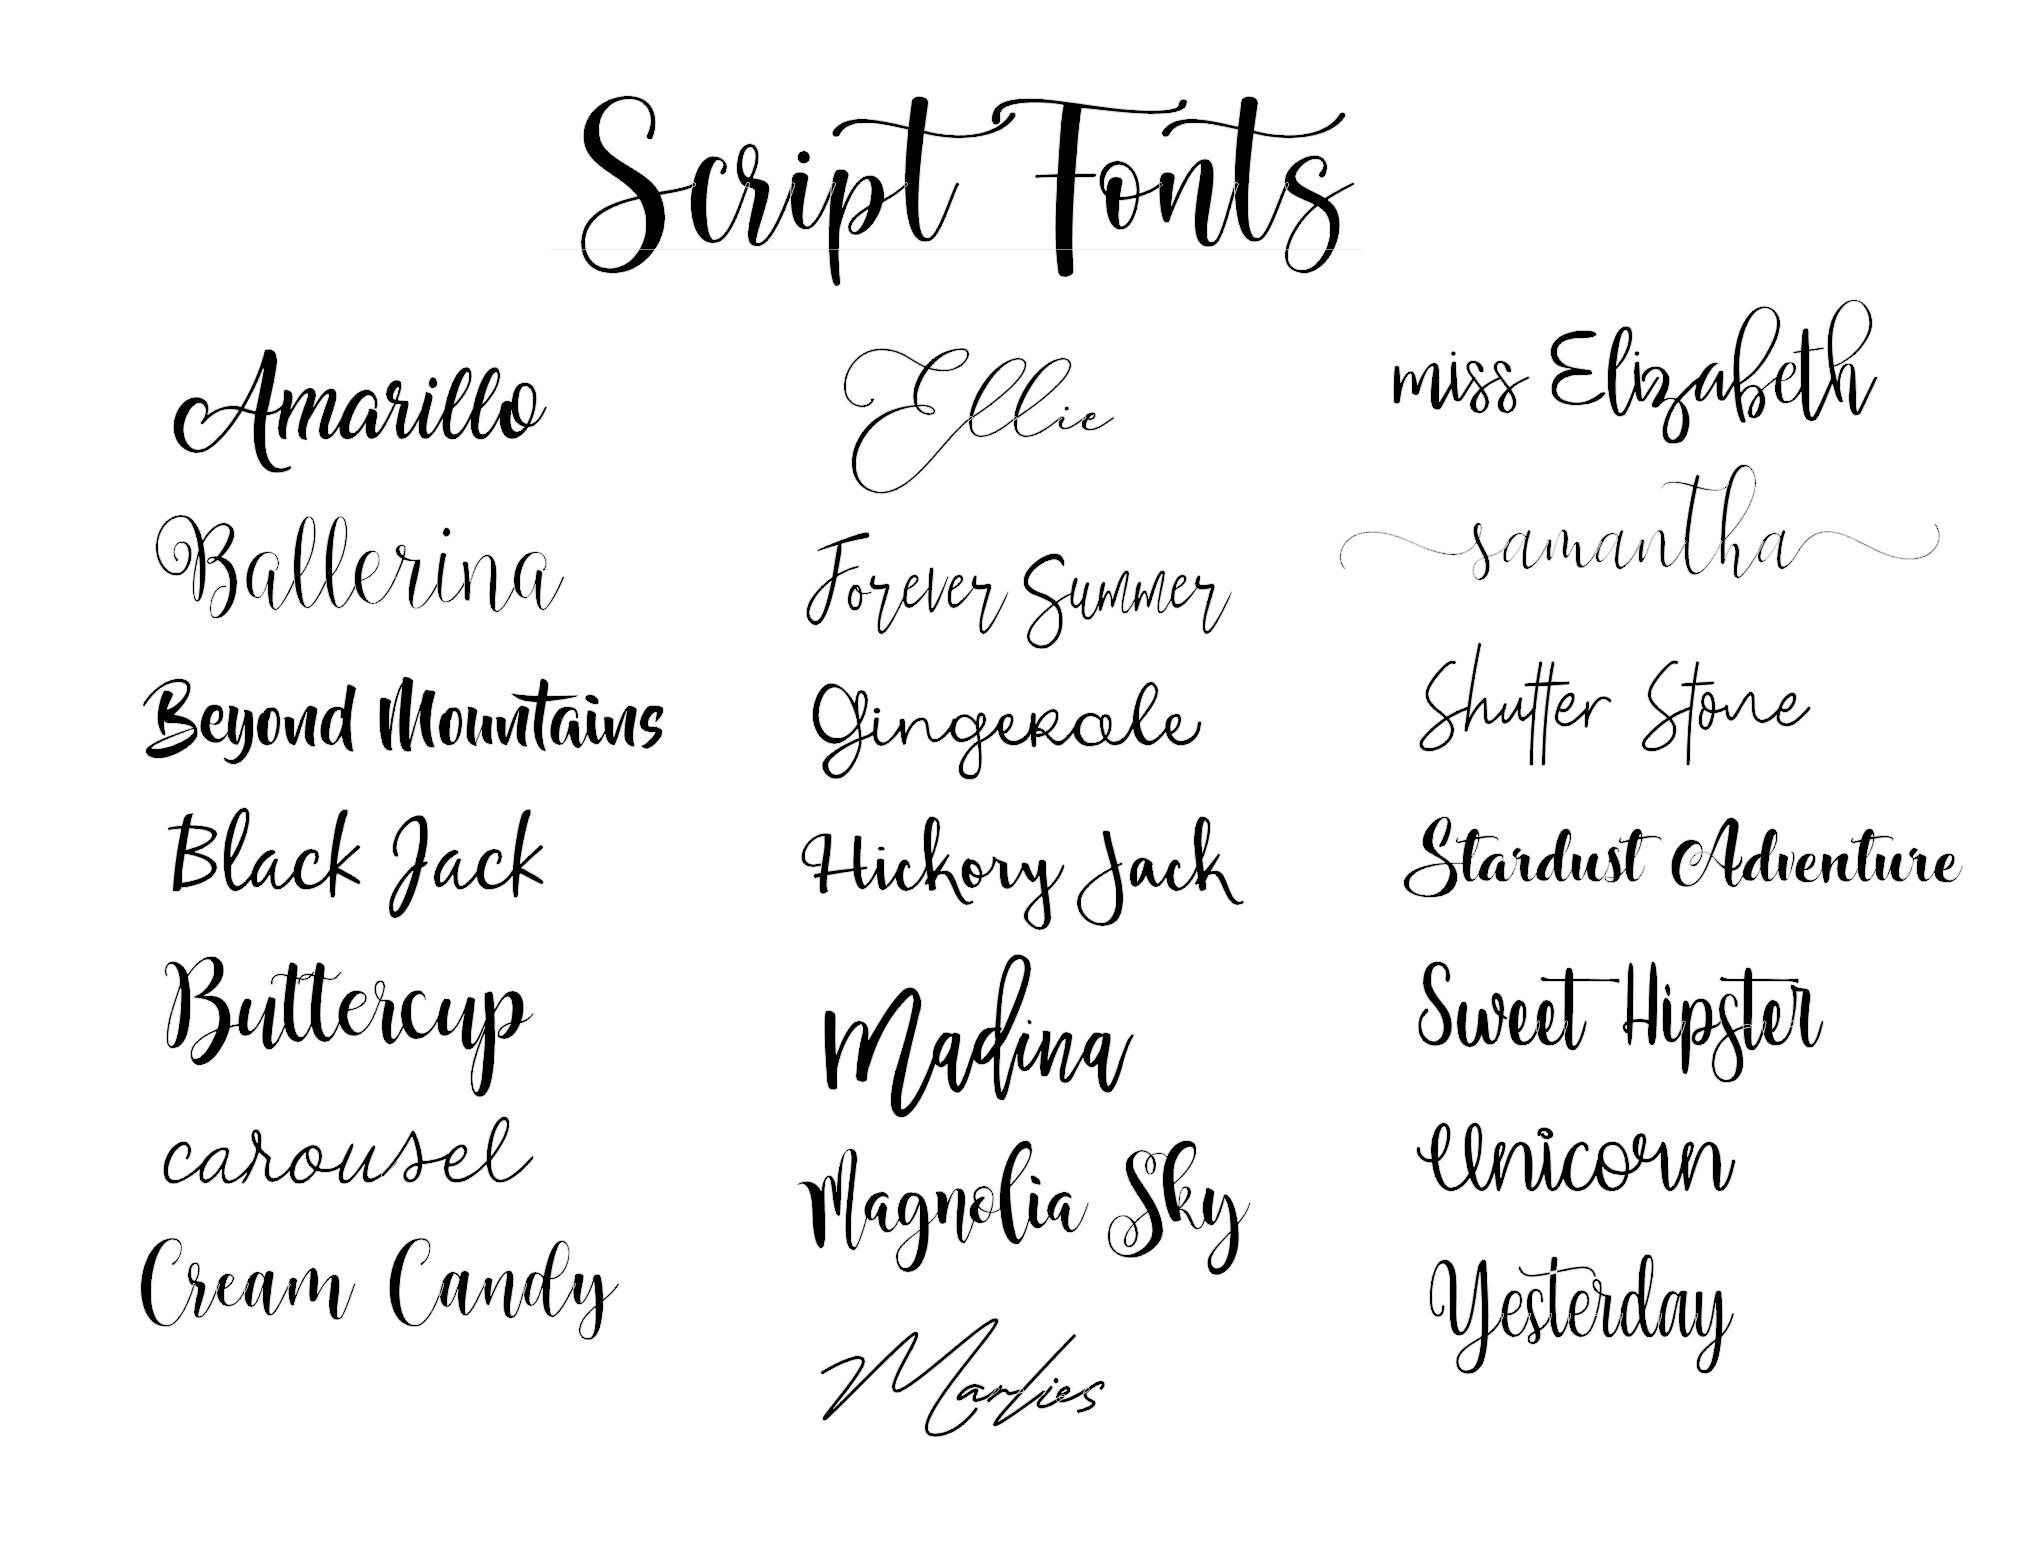 Script Fonts
Amarillo
Ballerina
Beyond Mountains
Black Jack
Buttercup
carousel
Cream Candy
Ellie
Forever Summer
Gingerale
Hickory Jack
Madina
Magnolia Sky
Marlies
miss Elizabeth
samantha
Shutter Stone
Stardust Adventure
Sweet Hipster
Unicorn
Yesterday